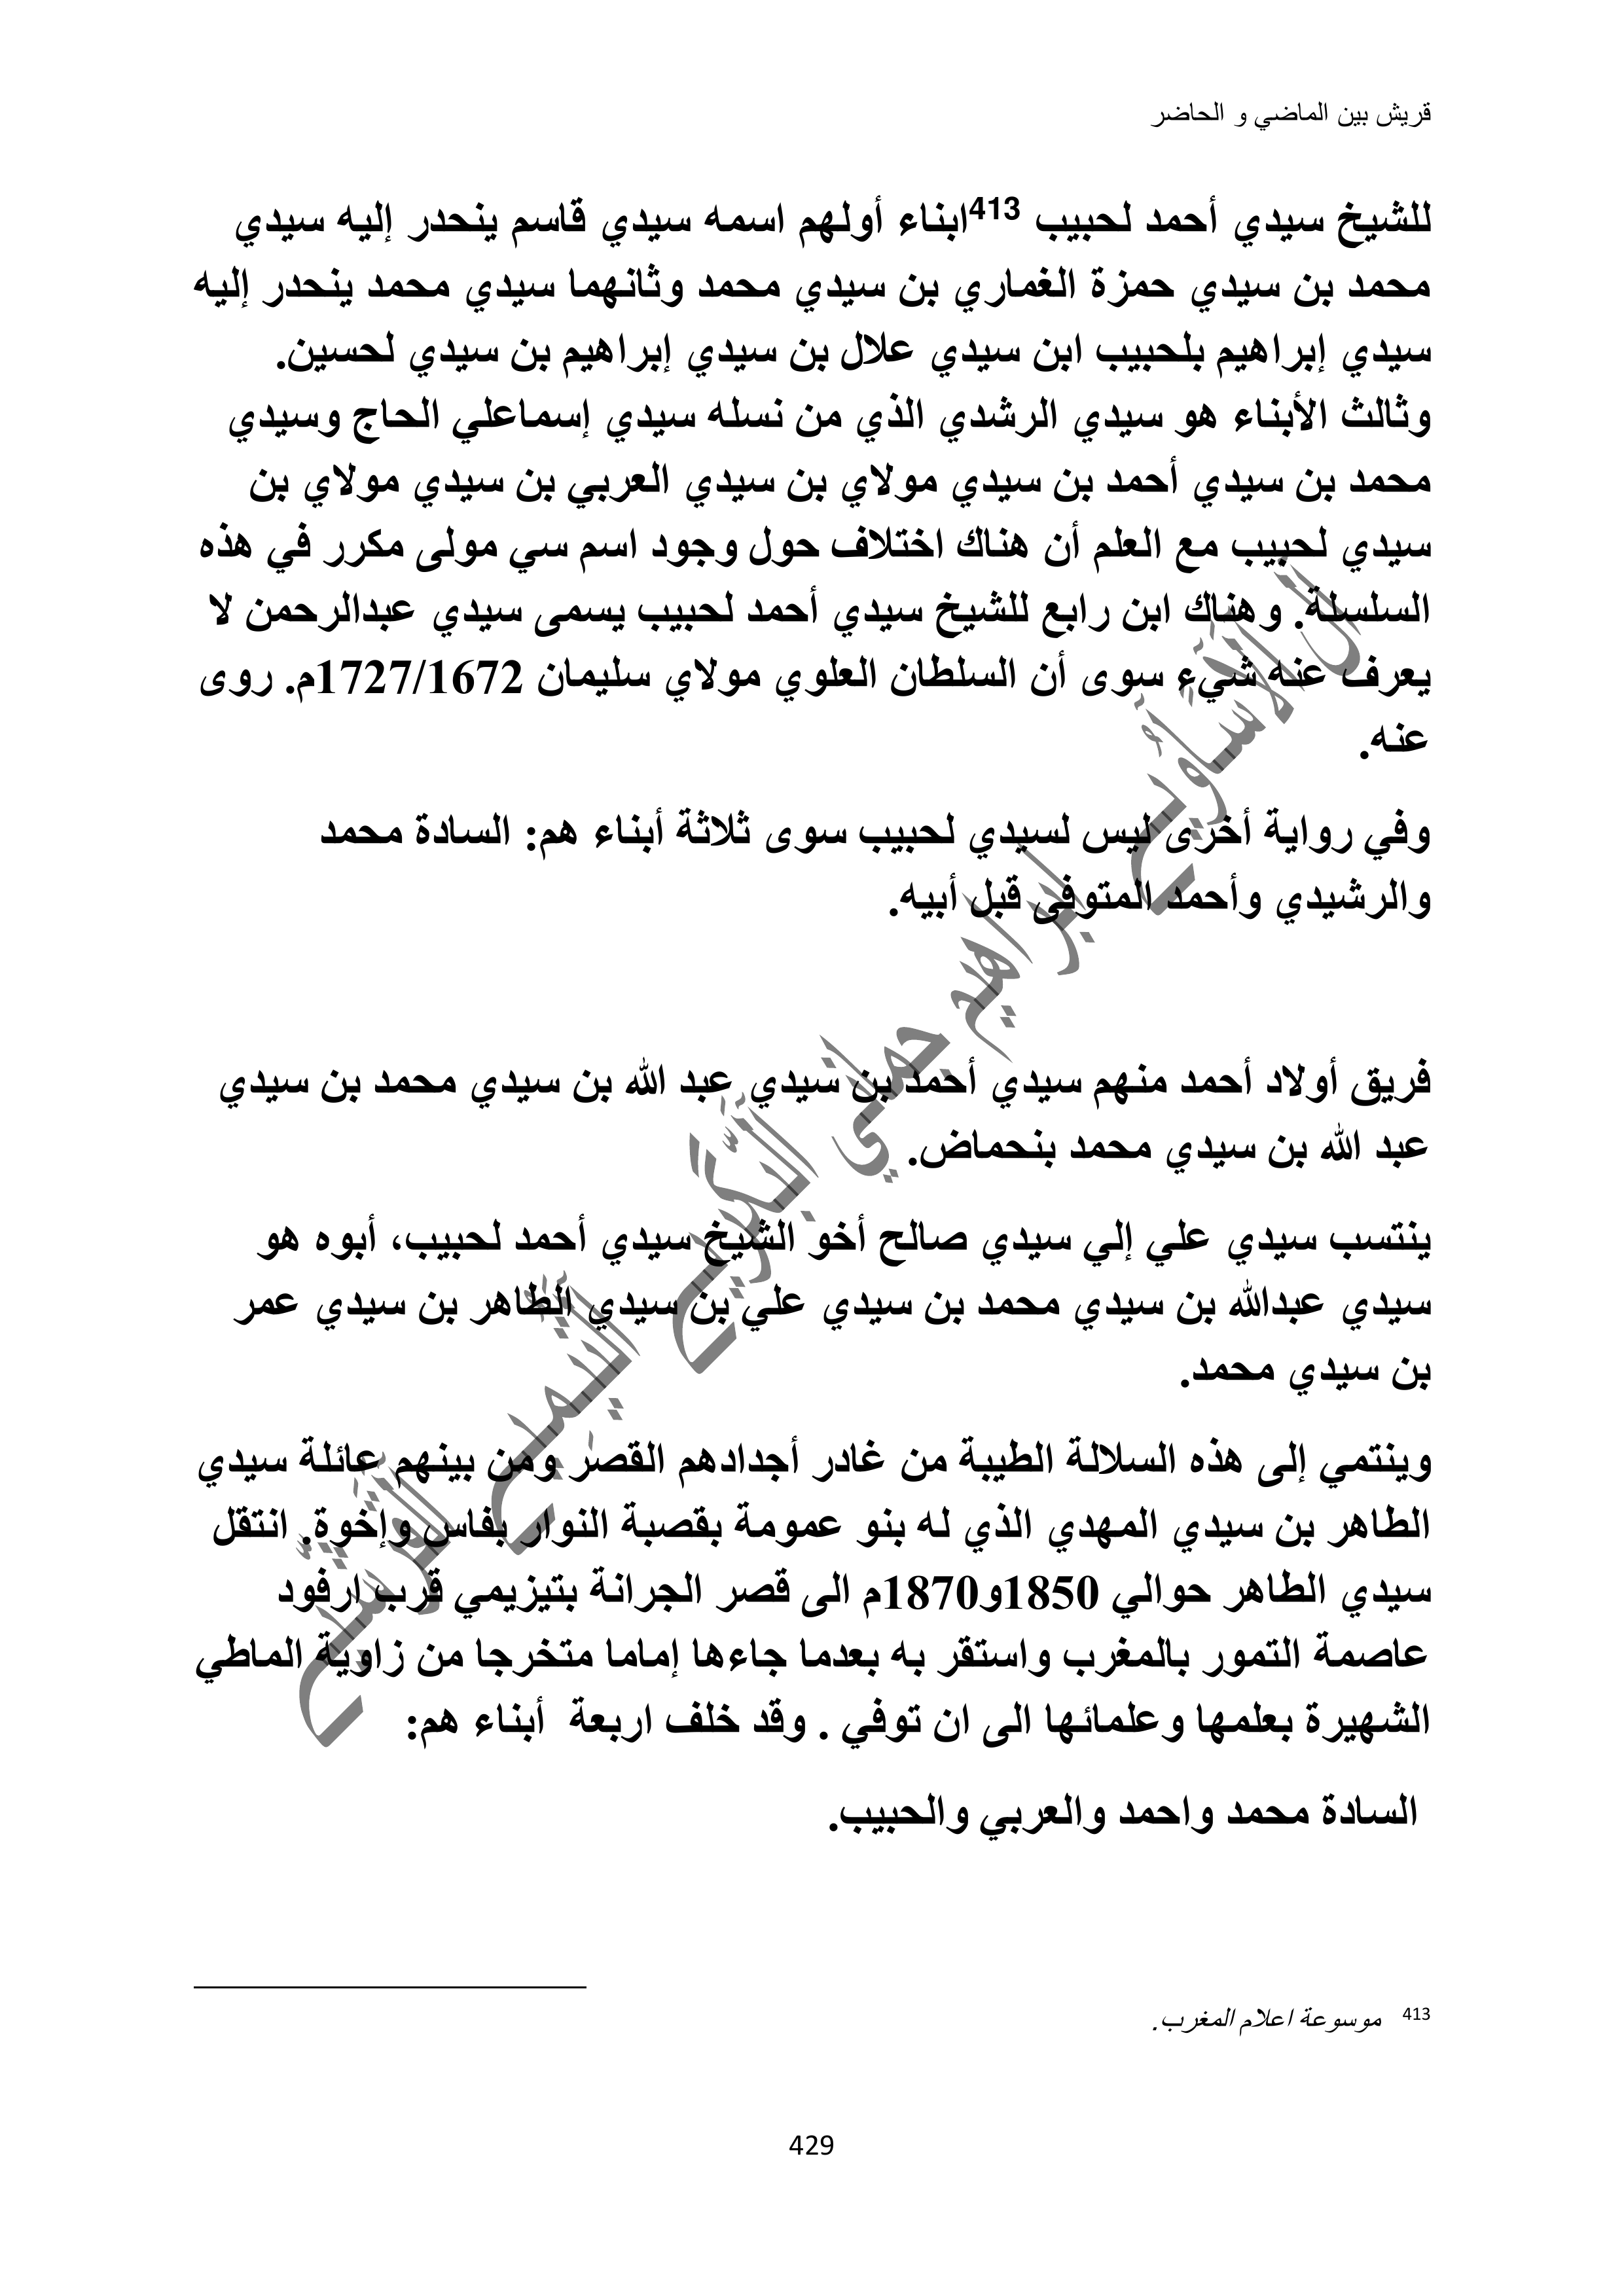 قريش بين الماضي و الحاضر
للشيخ سيدي أحمد لحبيب 413ابناء أولهم اسمه سيدي قاسم ينحدر إليه سيدي
محمد بن سيدي حمزة الغماري بن سيدي محمد وثانهما سيدي محمد ينحدر إليه
سيدي إبراهيم بلحبيب ابن سيدي علال بن سيدي إبراهيم بن سيدي لحسين.
وثالث الأبناء هو سيدي الرشدي الذي من نسله سيدي إسماعلي الحاج وسيدي
محمد بن سيدي أحمد بن سيدي مولاي بن سيدي العربي بن سيدي مولاي بن
سيدي لحبيب مع العلم أن هناك اختلاف حول وجود اسم سي مولى مكرر في هذه
السلسلة. وهناك ابن رابع للشيخ سيدي أحمد لحبيب يسمى سيدي عبدالرحمن لا
يعرف عنه شيء سوى أن السلطان العلوي مولاي سليمان 1727/1672م. روى
عنه.
وفي رواية أخرى ليس لسيدي لحبيب سوى ثلاثة أبناء هم: السادة محمد
والرشيدي وأحمد المتوفى قبل أبيه.
فريق أولاد أحمد منهم سيدي أحمد بن سيدي عبد الله بن سيدي محمد بن سيدي
عبد الله بن سيدي محمد بنحماض.
ينتسب سيدي علي إلي سيدي صالح أخو الشيخ سيدي أحمد لحبيب، أبوه هو
سيدي عبدالله بن سيدي محمد بن سيدي علي بن سيدي الطاهر بن سيدي عمر
بن سيدي محمد.
وينتمي إلى هذه السلالة الطيبة من غادر أجدادهم القصر ومن بينهم عائلة سيدي
الطاهر بن سيدي المهدي الذي له بنو عمومة بقصبة النوار بفاس وإخوة. انتقل
سيدي الطاهر حوالي 1850و1870م الى قصر الجرانة بتيزيمي قرب ارفود
عاصمة التمور بالمغرب واستقر به بعدما جاءها إماما متخرجا من زاوية الماطي
الشهيرة بعلمها وعلمائها الى ان توفي . وقد خلف اربعة أبناء هم:
السادة محمد واحمد والعربي والحبيب.
413 موسوعة اعلام المغرب.
429